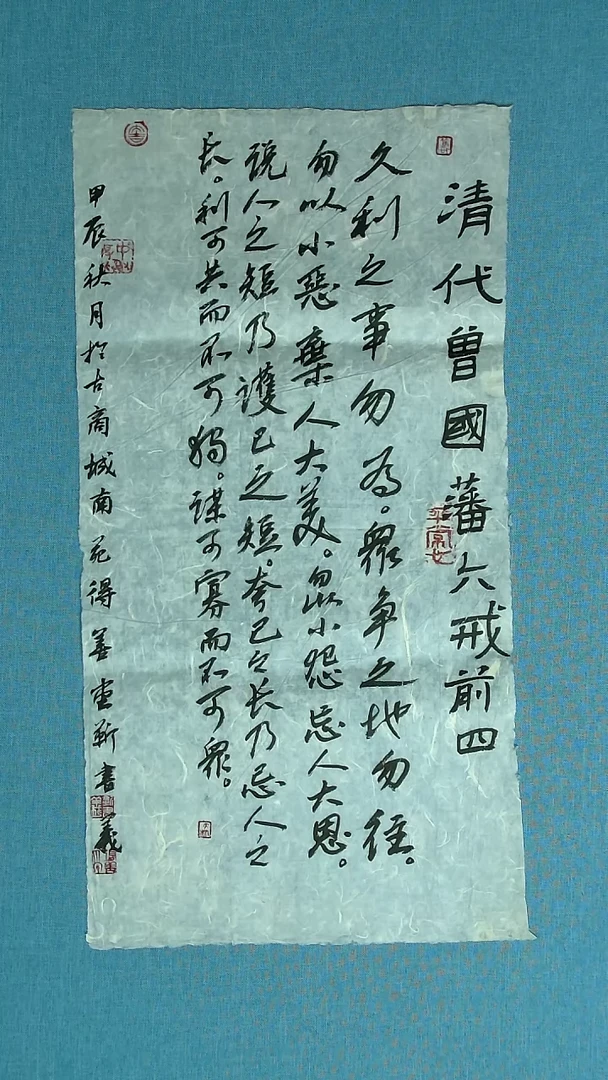 清代曾國藩六戒前四
久利之事勿為。眾争之地勿往。
勿以小惡棄人大美。勿以小怨忘人大恩。
说人之短乃護己之短。夸己之长乃忌人之
长。利可共而不可獨。谋可寡而不可眾。
甲辰秋月於古商城南苑得善壶靳書義